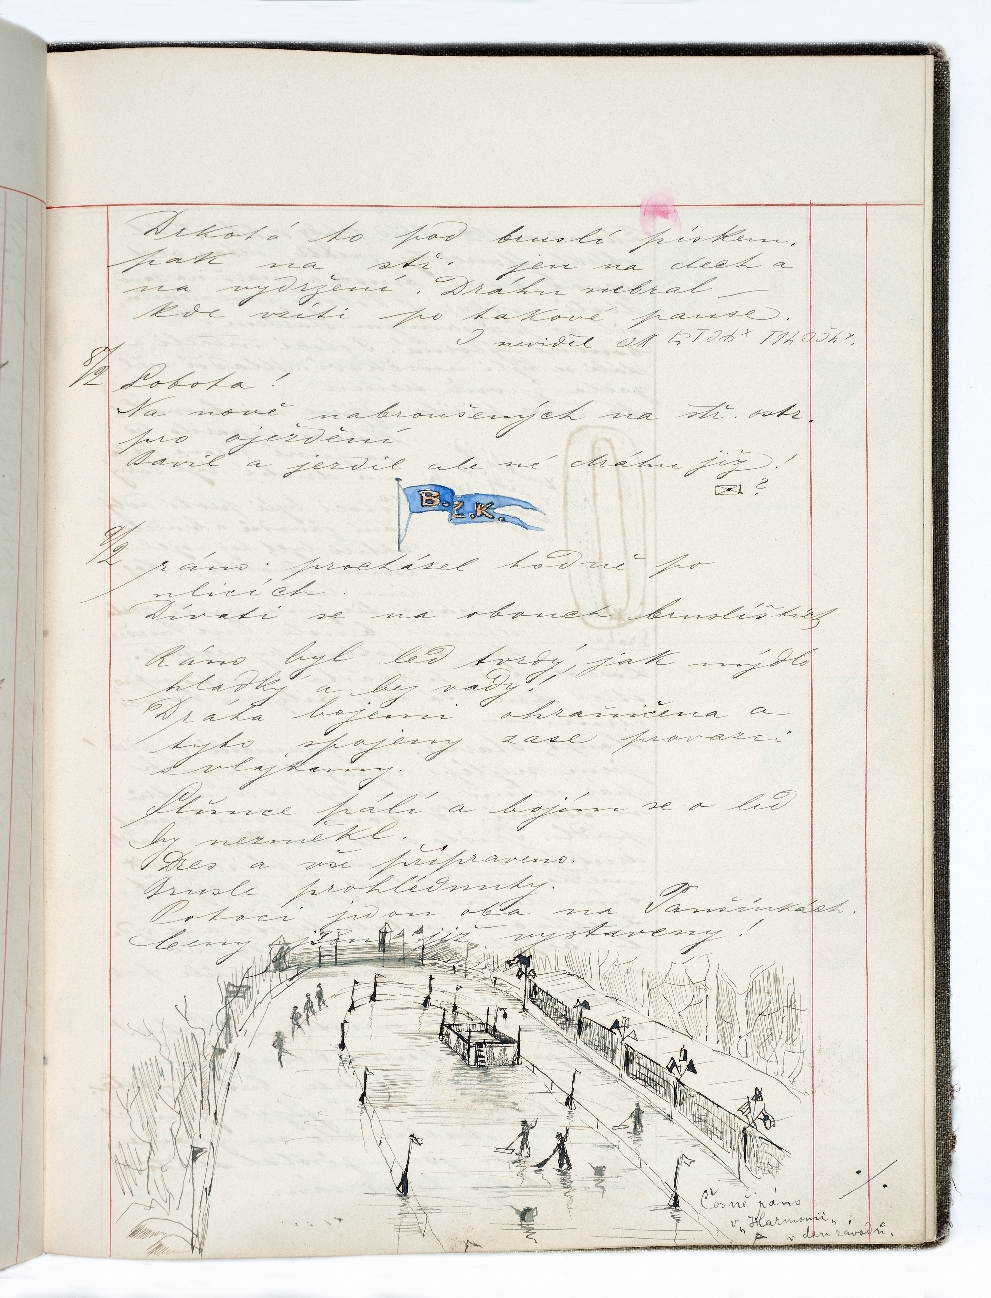 Drkotá to pod bruslí pískem.
pak na stř. jen na dech a
na vydržení. Dráhu nebral –
kde vzíti po takové pause.
I neviděl
8/2
Sobota!
Na nově nabroušených na stř. ostr.
pro ježdění
bavil a jezdil ale né dráhu již!
?
B. Z. K.
9/2
ráno: procházel hodně po
ulicích.
Dívati se na obouch bruslištích
Ráno byl led tvrdý, jak mýdlo
hladký a bez vady!
Dráha bojemi ohraničena a
tyto spojeny zase provazci
s vlajkamy.
Slunce pálí a bojím se o led
by nezměkl.
Dres a vše připraveno.
Brusle prohlédnuty.
jdou oba na
Ceny jsou již vystaveny!
Časně ráno
v „Harmonii"
v den závodů.
./.